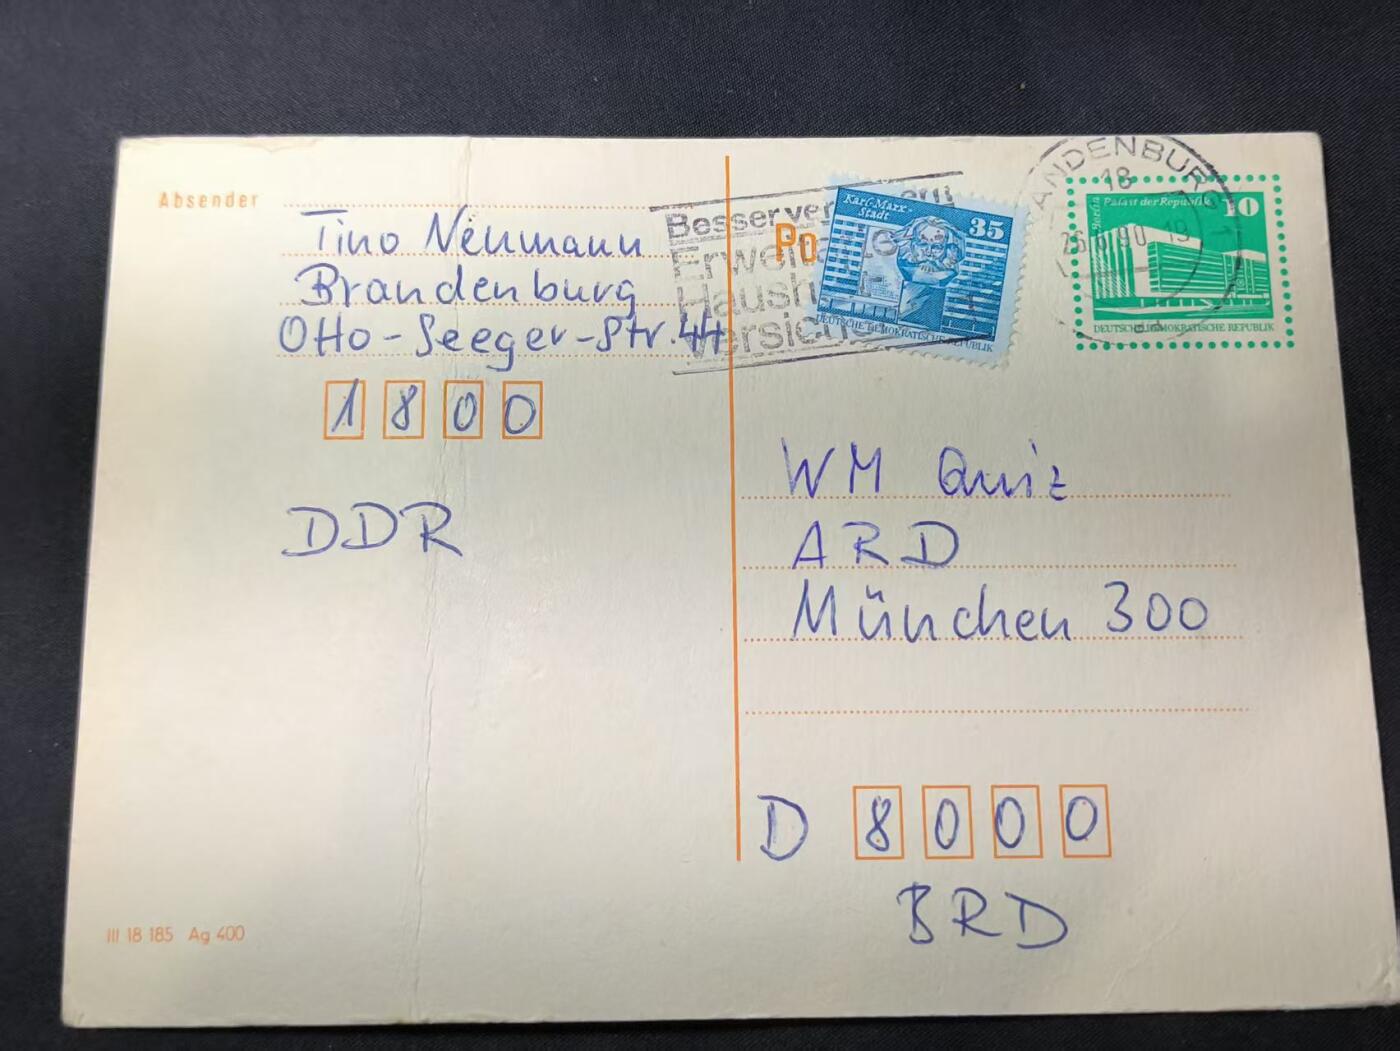 Absender
Tino Neumann
Brandenburg
Otto-Seeger-Str. 44
1800
DDR
III 18 185 Ag 400
Besser ver
Erweite
Haush
Versiche
Po
Karl-Marx-
Stadt
35
DEUTSCHE DEMOKRATISCHE REPUBLIK
ANDENBURG 1
18
26.6.90-19
Berlin
Palast der Republik
10
DEUTSCHE DEMOKRATISCHE REPUBLIK
WM Quiz
ARD
München 300
D 8000
BRD